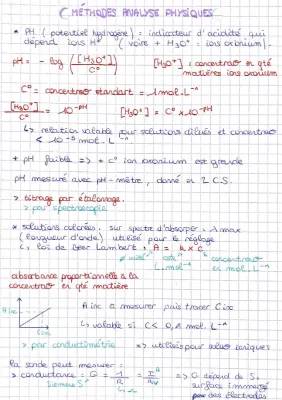 MÉTHODES ANALYSE PHYSIQUES
* PH (potentiel hydrogène) : indicateur d'acidité qui
dépend ions H⁺ (voire + H₃O⁺ : ions oxonium).
pH = - log ([H₃O⁺] / C°)
[H₃O⁺] : concentrat° en qté
matières ions oxonium
C° = concentrat° standart = 1 mol.L⁻¹
[H₃O⁺] / C° = 10⁻ᵖᴴ
[H₃O⁺] = C° x 10⁻ᵖᴴ
↳ relation valable pour solutions dilués et concentrat°
+ pH faible => + c° ion oxonium est grande
pH mesuré avec pH-mètre, donné à 2 C.S.
> titrage par étalonnage.
> par spectroscopie
* solutions colorées, sur spectre d'absorpt°, λ max
(longueur d'onde) utilisé pour le réglage
↳ loi de Beer Lambert, A = k x C
L.mol⁻¹
concentrat°
en mol.L⁻¹
absorbance proportionnelle à la
concentrat° en qté matière
A inc
C inc
A inc à mesurer puis tracer C inc
↳ valable si C <
mol.L⁻¹
> par conductimétrie => utilisé pour solut° ioniques
la sonde peut mesurer :
> conductance : G = 1/R =
siemens S
=> G dépend de S,
surface immergé
des électrodes